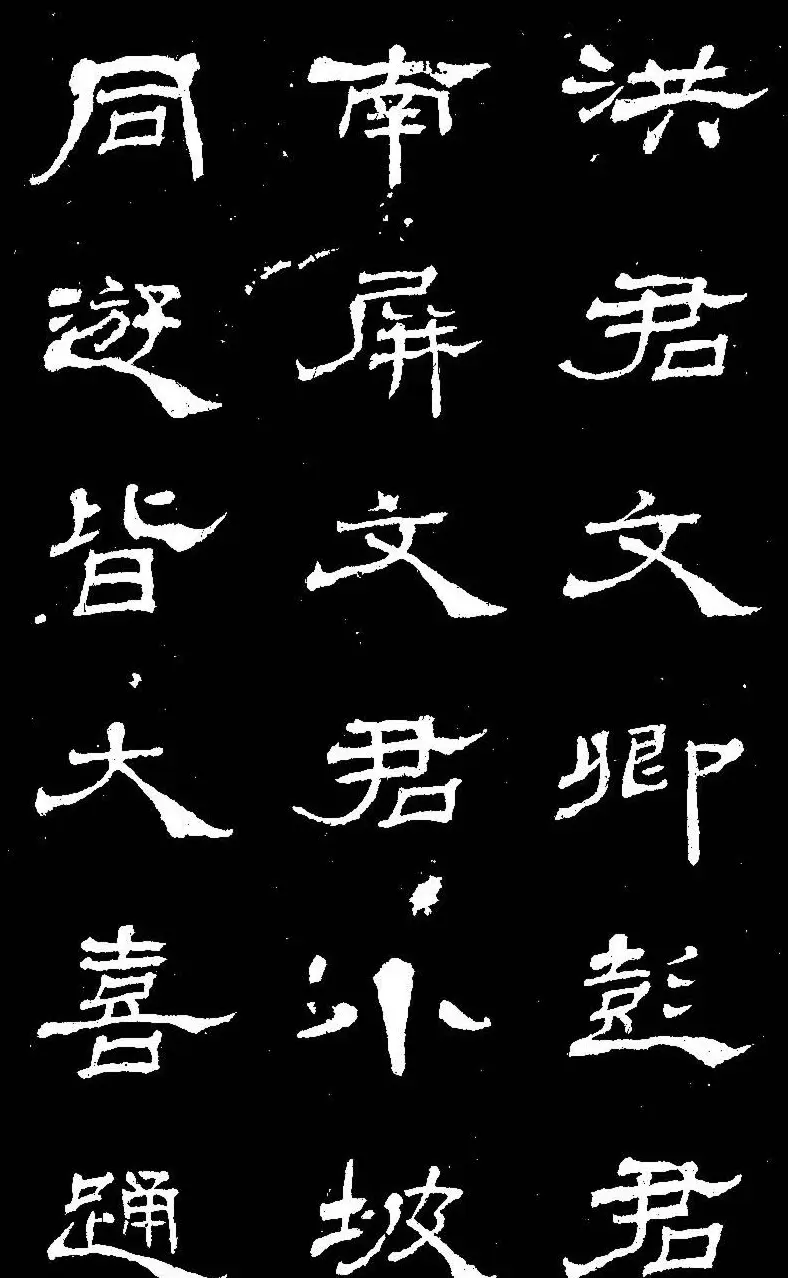 洪君文卿彭君
南屏文君小坡
同遊皆大喜踊